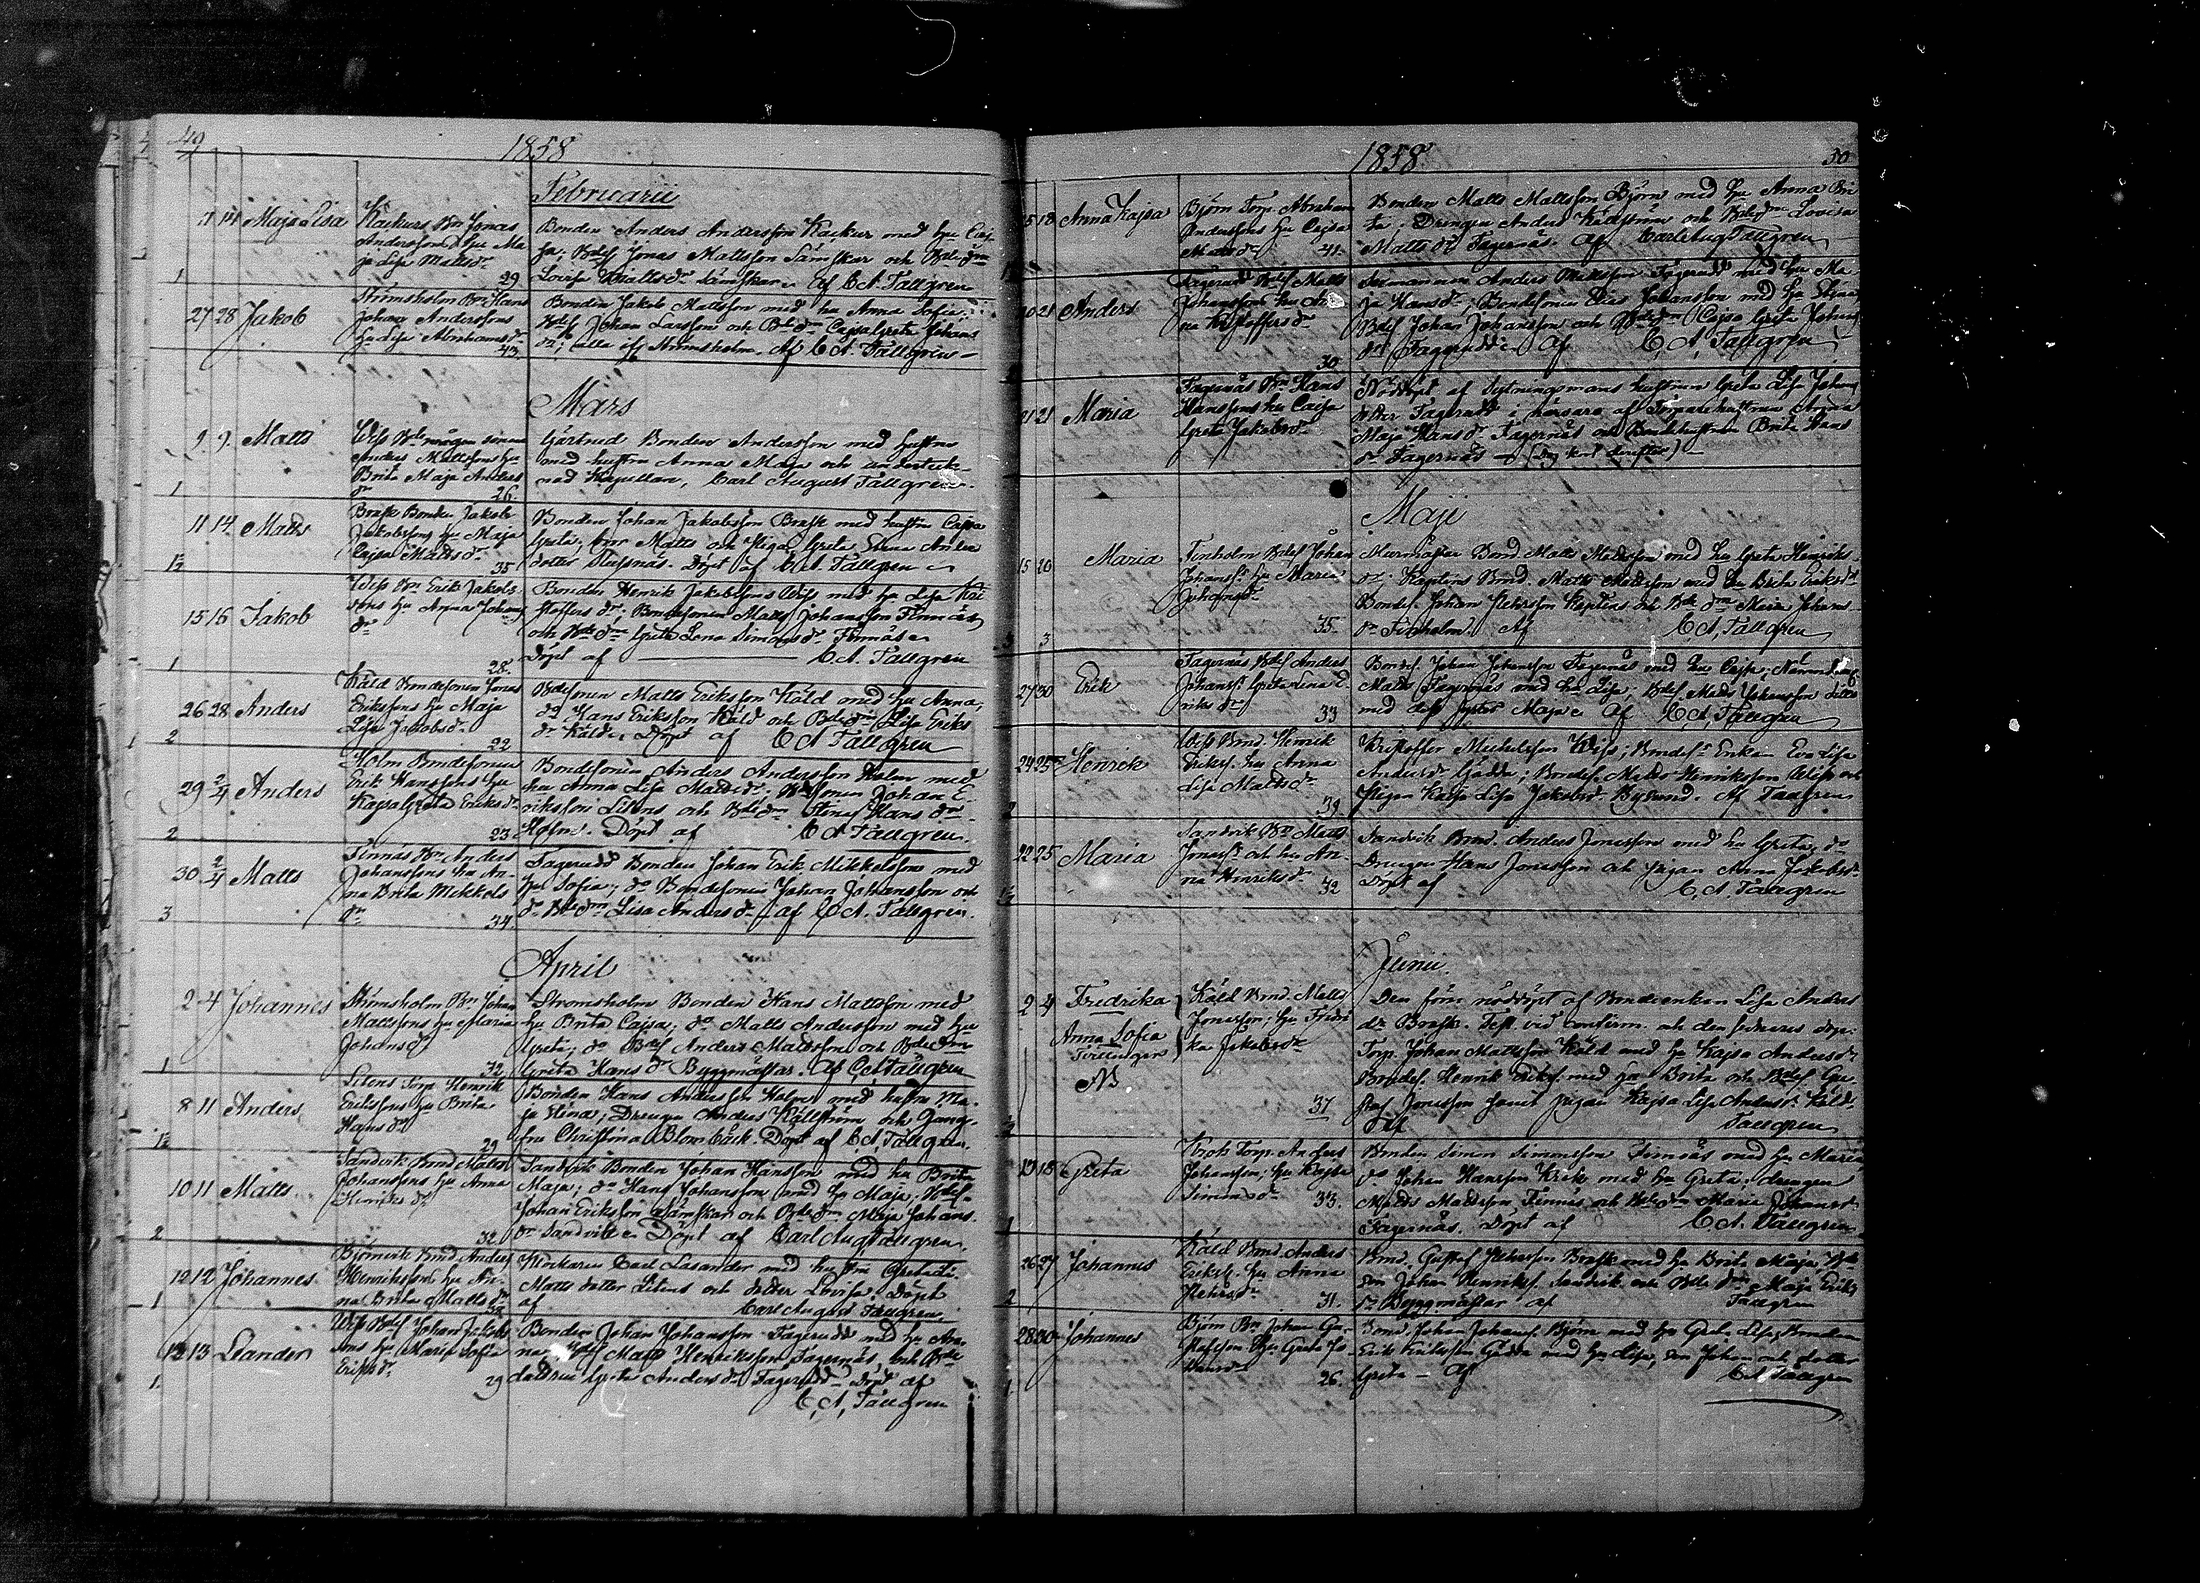 49
1858
Februarii
7 14 Maja Lisa
Kackurs Bn Jonas
Anderssons hu Ma
ja Lisa Mattsdr
29
Bonden Anders Andersson Kackur med hu Caj
sa; Bdes Jonas Mattsson Lämskar och Bde dm
Lovisa Mattsdr Lämskar. Af C A Tallgren
1
27 28 Jakob
Strömsholm Bn Hans
Johan Anderssons
hu Lisa Abrahamsdr
43
Bonden Jakob Mattsson med hu Anna Sofia;
Bdes Johan Larsson och Bde dm Cajsa Greta Johans
dr; alla af Strömsholm. Af C A. Tallgren
Mars
9 9 Matts
Anders Mattssons hu
Brita Maja Anders
dr 26
Bonden Andersson med hustru
med hustru Anna Maja och underteck-
nad Kapellan, Carl August Tallgren.
1
11 14 Matts
Brask Bonden Jakob
Jakobssons hu Maja
Cajsa Mattsdr
35
Bonden Johan Jakobsson Brask med hustru Cajsa
Greta; bror Matts och Pigan Greta Stina Anders
dotter Tlusnäs. Döpt af C A Tallgren
15 16 Jakob
Wiss Bn Erik Jakobs
sons hu Anna Johans
dr
28
Bonden Henrik Jakobsson Wiss med hu Lisa Kri
stoffers dr; Bondesonen Matts Johansson Finnäs
och Bde dm Greta Lena Simonsdr Finnäs
Döpt af C A. Tallgren
1
26 28 Anders
Käld Bondesonen Jonas
Erikssons hu Maja
Lisa Jakobsdr
22
Bdesonen Matts Eriksson Käld med hu Anna,
do Hans Eriksson Käld och Bde dm Lisa Eriks
dr Käld. Döpt af C A Tallgren
2
29 2/4 Anders
Holm Bondesonen
Erik Hanssons hu
Kajsa Greta Eriksdr
23
Bondesonen Anders Andersson Holm med
hu Anna Lisa Mattsdr; Bdesonen Johan E-
riksson Litens och Bde dm Stina Hansdr
Holm. Döpt af C A Tallgren.
2
30 2/4 Matts
Finnäs Bn Anders
Johanssons hu An-
na Brita Mikkels
dr 34
Fagerudd Bonden Johan Erik Mikkelsson med
hu Sofia; do Bondesonen Johan Johansson och
do Bde dm Lisa Andersdr. af C A. Tallgren.
3
April
2 4 Johannes
Strömsholm Bn Johan
Mattssons hu Maria
Johansdr
32
Strömsholm Bonden Hans Mattsson med
hu Brita Cajsa; do Matts Andersson med hu
Greta; do Bdes Anders Mattsson och Bde dm
Greta Hansdr Byggmästar. Af C A Tallgren
1
8 11 Anders
Litens Torp. Henrik
Erikssons hu Brita
Hansdr
29
Bonden Hans Andersson Holm med hustru Ma-
ja Stina; Drengen Anders Källström och Jung-
fru Christina Blombäck. Döpt af C A. Tallgren.
10 11 Matts
Sandvik Bond. Matts
Johanssons hu Anna
Henriksdr
32
Sandvik Bonden Johan Hansson med hu Brita
Maja; do Hans Johansson med hu Maja; Bdes
Johan Eriksson Lämskar och Bde dm Maja Johans
dr Sandvik. Döpt af Carl Aug Tallgren.
2
12 12 Johannes
Björnvik Bond. Anders
Henrikssons hu An-
na Brita Mattsdr
Klockaren Carl Lasander med hustru
Matts dotter Litens och dotter Lovisa. Döpt
af Carl August Tallgren.
1
12 13 Leander
Wiss Bdes Johan Jakobs
sons hu Maria Sofia
Eriksdr
29
Bonden Johan Johansson Fagerudd med hu An-
na; Bdes Matts Henriksson Fagernäs, och Bde
dottren Greta Andersdr Fagerudd. Döpt af
C, A, Tallgren
1.
1858
50
15 18 Anna Kajsa
Björn Torp. Abraham
Anderssons hu Cajsa
Mattsdr 41
Bonden Matts Mattsson Björn med hu Anna Bri
ta; Drengen Anders Källström och Bde dm Lovisa
Mattsdr Fagernäs. Af Carl Aug Tallgren
20 21 Anders
Fagerudd Bdes Matts
Johanssons hu An
na Kristoffersdr
30
Sexmannen Anders Mattsson Fagerudd med hu Ma
ja Hansdr; Bondesonen Elias Johansson med hu Stina;
Bdes Johan Johansson och Bde dm Cajsa Greta Johans
dr Fagerudd. Af C, A, Tallgren
21 21 Maria
Fagernäs Bn Hans
Hanssons hu Cajsa
Greta Jakobsdr
Nöddöpt af Sytningsmans hustrun Greta Lisa Johans
dotter Fagerudd i närvaro af Torparehustrun Anna
Maja Hansdr Fagernäs och Bondehustrun Brita Hans
dr Fagernäs
Maji
15 20 Maria
Finholm Bdes Johan
Johanss. hu Maria
Johansdr
35.
Murmästar Bond. Matts Mattsson med hu Greta Henriks
dr; Kaptens Bond. Matts Mattsson med hu Brita Eriksdr
Bondes. Johan Pehrsson Kaptens och Bde dm Maria Johans
dr Finholm. Af C A, Tallgren
3
27 30 Erik
Fagernäs Bdes Anders
Johanss. Greta Lena E-
riksdr 33
Bondes. Johan Johansson Fagernäs med hu Cajsa; Nämndem.
Matts Fagernäs med hu Lisa; Bdes. Matts Johansson ditto
med dess syster Maja. Af C A, Tallgren
24 25 Henrik
Wiss Bond. Henrik
Erikss. hu Anna
Lisa Mattsdr
39.
Kristoffer Michelsson Wiss; Bondes Enkan Eva Lisa
Andersdr Gädda; Bondes. Matts Henriksson Wiss och
Pigan Kajsa Lisa Jakobsdr Bysund. Af Tallgren
2
22 25 Maria
Sandvik Bn Matts
Jonass. och hu An-
na Henriksdr
32
Sandvik Bond. Anders Jonasson med hu Greta; do
Drengen Hans Jonasson och pigan Anna Jakobsdr
Döpt af C, A. Tallgren
Junii.
2 4 Fredrika
Anna Sofia
Tvillingar
NB
Käld Bond. Matts
Jonasson; hu Fredri
ka Jakobsdr
37
Den förra nöddöpt af Bondeenkan Lisa Anders
dr Brask. Test. vid confirm. och den sednares dop:
Torp. Johan Mattsson Käld med hu Kajsa Andersdr
Bondes. Henrik Erikss. med hu Brita och Bdes Gu-
staf Jonasson samt pigan Kajsa Lisa Andersdr Käld.
Af Tallgren
13 18 Greta
Krok Torp. Anders
Johansson; hu Kajsa
Simonsdr 33.
Bonden Simon Simonsson Finnäs med hu Maria
do Johan Hansson Krok med hu Greta; drengen
Matts Mattsson Finnäs och Bde dm Maria Johansdr
Fagernäs. Döpt af C A. Tallgren
1
26 27 Johannes
Käld Bond. Anders
Erikss. hu Anna
Pehrsdr 31.
Bond. Gustaf Pehrsson Brask med hu Brita Maja; Bde
son Johan Henrikss. Sandvik och Bde dm Maja Eriks
dr Byggmästar. af Tallgren
2
28 30 Johannes
Björn Bn Johan Gu-
stafsson hu Greta Jo
hansdr 26.
Bond. Johan Johanss. Björn med hu Greta Lisa; Bonden
Erik Eriksson Gädda med hu Lisa, son Johan och dotter
Greta — Af C A Tallgren
1